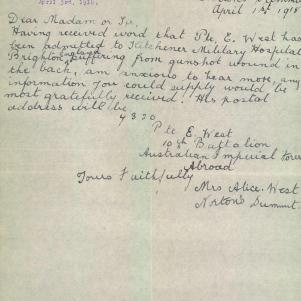 April 3rd, 1918.
April 1st 1918
Dear Madam or Sir,
Having received word that Pte. E. West has
been admitted to Kitchener Military Hospital
Brighton England suffering from gunshot wound in
the back, am anxious to hear more, any
information you could supply would be
most gratefully received. His postal
address will be
4320
Pte E. West
10th Battalion
Australian Imperial Force
Abroad
Yours Faithfully
Mrs Alice. West
Norton's Summit